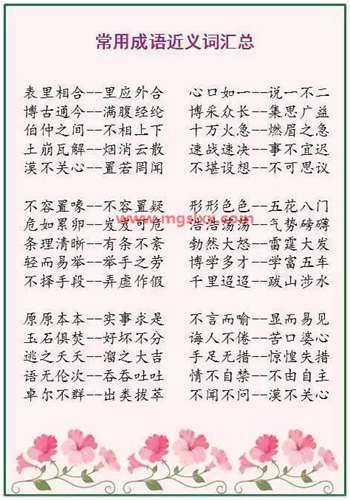 常用成语近义词汇总
表里相合--里应外合 心口如一--说一不二
博古通今--满腹经纶 博采众长--集思广益
伯仲之间--不相上下 十万火急--燃眉之急
土崩瓦解--烟消云散 速战速决--事不宜迟
漠不关心--置若罔闻 不堪设想--不可思议
不容置喙--不容置疑 形形色色--五花八门
www.mgslxx.com
危如累卵--岌岌可危 浩浩荡荡--气势磅礴
条理清晰--有条不紊 勃然大怒--雷霆大发
轻而易举--举手之劳 博学多才--学富五车
不择手段--弄虚作假 千里迢迢--跋山涉水
原原本本--实事求是 不言而喻--显而易见
玉石俱焚--好坏不分 诲人不倦--苦口婆心
逃之夭夭--溜之大吉 手足无措--惊惶失措
语无伦次--吞吞吐吐 情不自禁--不由自主
卓尔不群--出类拔萃 不闻不问--漠不关心